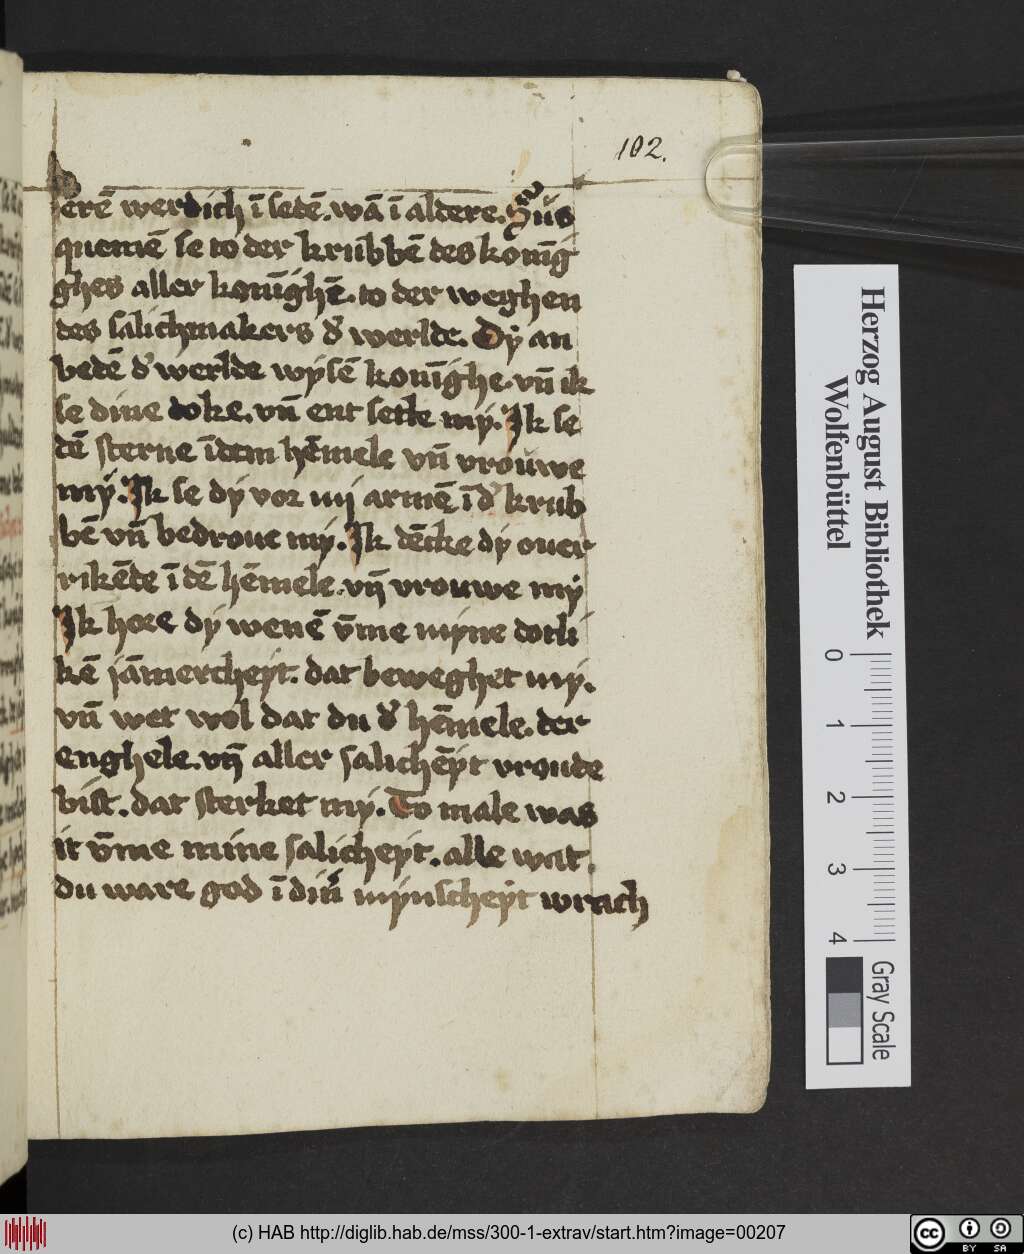 102.
erē werdich ī sedē. wā ī aldere. Sus
quemē se to der krubbē des konīg
ghes aller konīghē. to der weghen
des salichmakers d' werlde. Dy an
bedē d' werlde wysē konīghe. vn̄ ik
se dine doke. vn̄ ent sette my. Ik se
dē sterne ī dem hēmele vn̄ vrouwe
my. Ik se dy vor mȳ armē ī d' krub
bē vn̄ bedroue my. Ik dēcke dy ouer
rikēde ī dē hēmele. vn̄ vrouwe my
Ik hore dy wenē v̄me myne dotli
kē jāmercheyt. dat beweghet my.
vn̄ wet wol dat du d' hēmele. der
enghele. vn̄ aller salichēyt vroude
bist. dat sterket my. To male was
it v̄me mine salicheyt. alle wat.
du ware god ī din' mynscheyt wrach
Herzog August Bibliothek
Wolfenbüttel
0 1 2 3 4
Gray Scale
(c) HAB http://diglib.hab.de/mss/300-1-extrav/start.htm?image=00207
cc BY SA